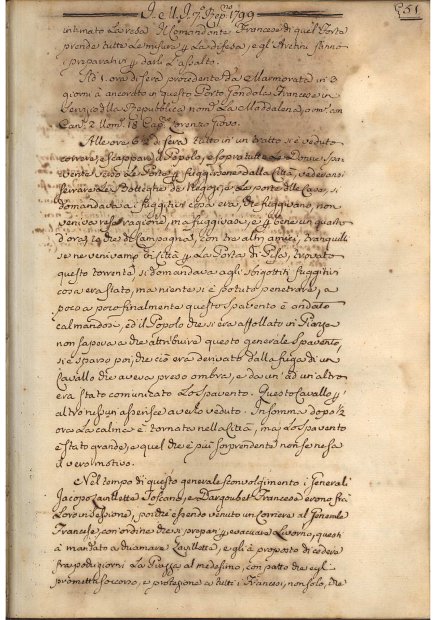 I. e U. I. 7.º Rep.no 1799
651
intimato la resa. Il Comandante Francese di quel Forte
prende tutte le misure p la difesa, e gl'Aretini fanno
i preparativi p darli l'assalto.
All' 1. ora di sera procedente da Marmorata in 3
giorni à ancorato in questo Porto Gondola Francese in
della Repubblica nom.a La Maddalena, arm. con
Can. 2 Uom. 18 Cap. Lorenzo
Alle ore 6 2 di sera tutto in un tratto si è veduto
correre, e scappare il Popolo, e sopra tutte le Donne spa
ventate verso le Porte p fuggirsene dalla Città, vedevansi
serrare le Botteghe de Negozj, e le porte delle Case, si
domandava a i fuggitivi cosa era, che fuggivano, non
veniva resa ragione, ma fuggivano, e p bene un quarto
d'ora, io che di Campagna, con tre altri amici, tranquilli
se ne venivamo in Città p la Porta di Pisa, trovato
questo torrente si domandava agli spigottiti fuggitivi
cosa era stato, ma niente si è potuto penetrare, a
poco a poco finalmente questo spavento è andato
calmandosi, ed il Popolo che si era affollato in Piazza
non sapeva a che attribuire questo generale spavento,
si è sparso poi, che ciò era derivato dalla fuga di un
Cavallo che aveva preso ombra, e da un' ad un'altro
era stato comunicato lo spavento. Questo Cavallo p
altro nessun asserisce averlo veduto. Insomma dopo ½
ora la calma è tornata nella Città, ma lo spavento
è stato grande, e quel che è più sorprendente non se ne sa
il vero motivo.
Nel tempo di questo generale sconvolgimento i Generali
Jacopo Lavillette Toscano, e Dargoubet Francese erono fra
loro in sessione, poiche essendo venuto un Corriere al Generale
Francese, con ordine che si prepari p evacuare Livorno, questi
à mandato a chiamare Lavillette, e gli à proposto di cedere
fra pochi giorni la Piazza al medesimo, con patto che egli
prometti soccorso, e protezione a tutti i Francesi, non solo, che